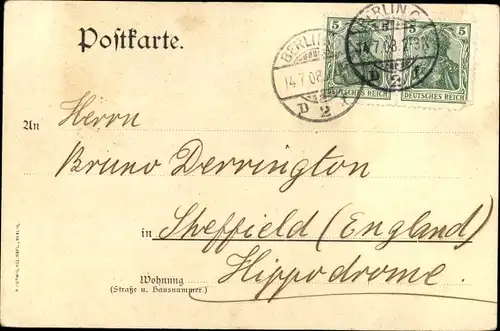 Postkarte.
5 5
DEUTSCHES REICH DEUTSCHES REICH
BERLIN C
14.7.08
D 2 1
BERLIN C
14.7.08
D 2 1
An Herrn
Bruno Derrington
in Sheffield (England)
Wohnung Hippodrome.
(Straße u. Hausnummer.)